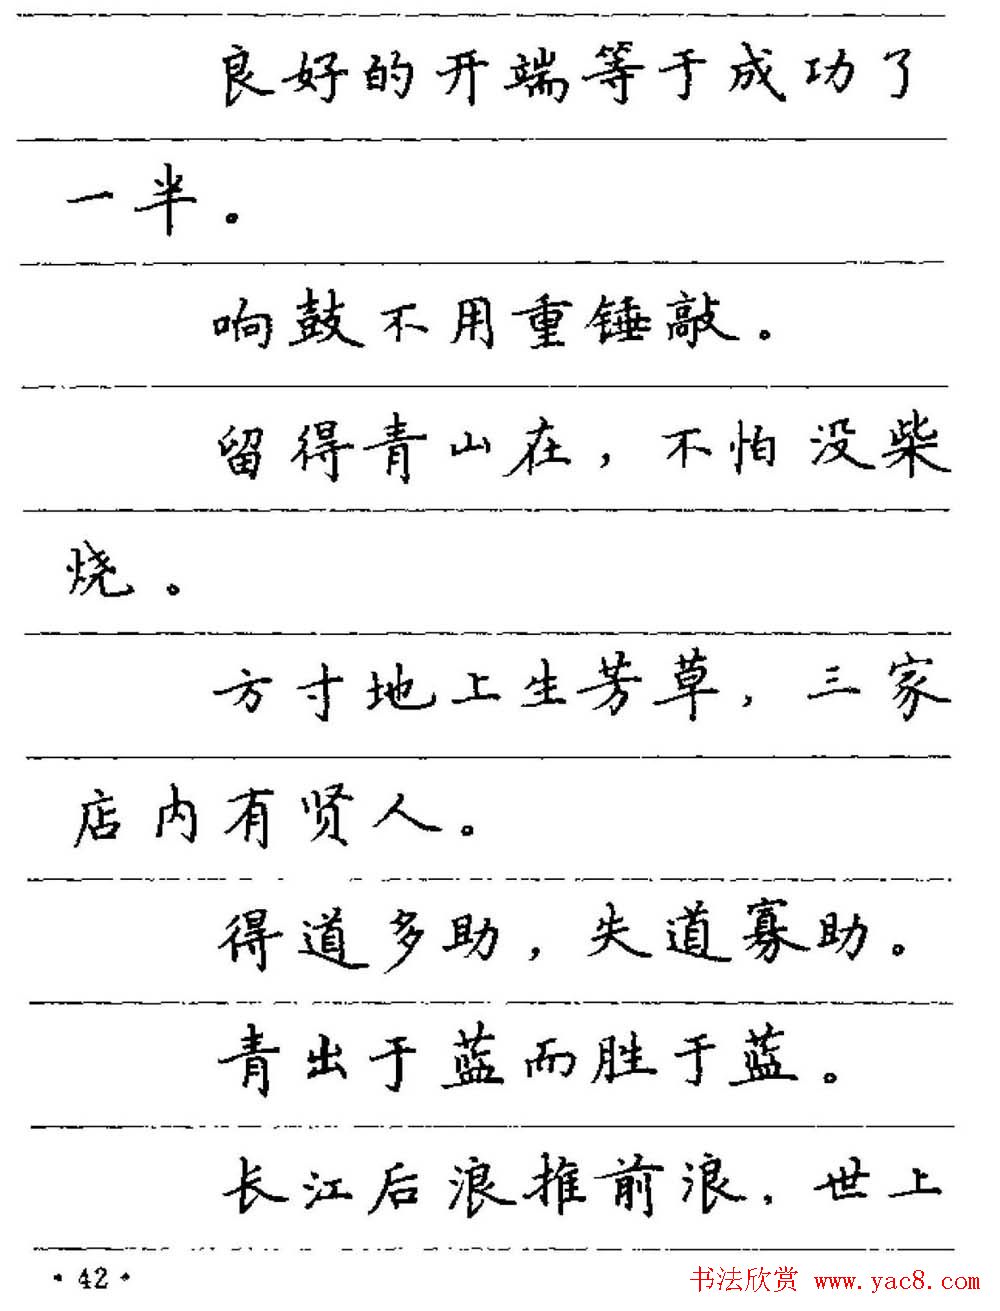 良好的开端等于成功了
一半。
响鼓不用重锤敲。
留得青山在，不怕没柴
烧。
方寸地上生芳草，三家
店内有贤人。
得道多助，失道寡助。
青出于蓝而胜于蓝。
长江后浪推前浪，世上
·42·
书法欣赏 www.yac8.com